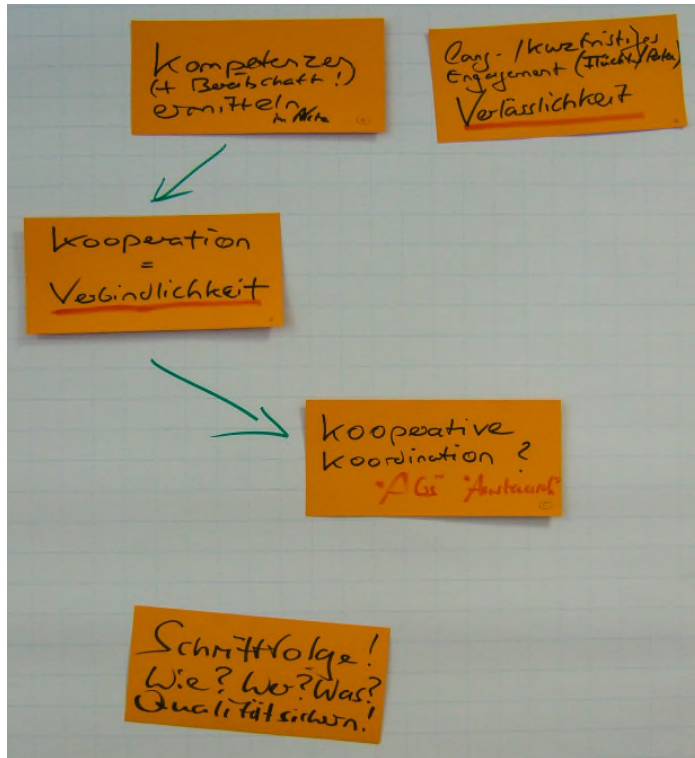 Kompetenzen
(+ Bereitschaft!)
ermitteln
Lang-/kurzfristiges
Engagement (Flücht/Paten)
Verlässlichkeit
Kooperation
=
Verbindlichkeit
Kooperative
Koordination?
"AGs" "Austausch"
Schrittfolge!
Wie? Wer? Was?
Qualität sichern!